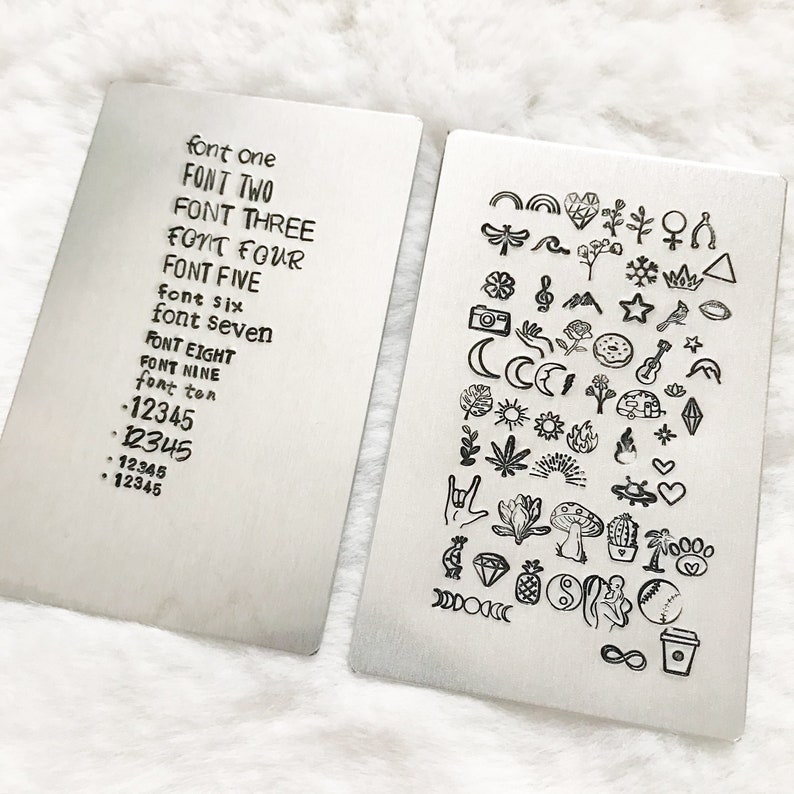 font one
FONT TWO
FONT THREE
FONT FOUR
FONT FIVE
font six
font seven
FONT EIGHT
FONT NINE
font ten
·12345
·12345
·12345
·12345